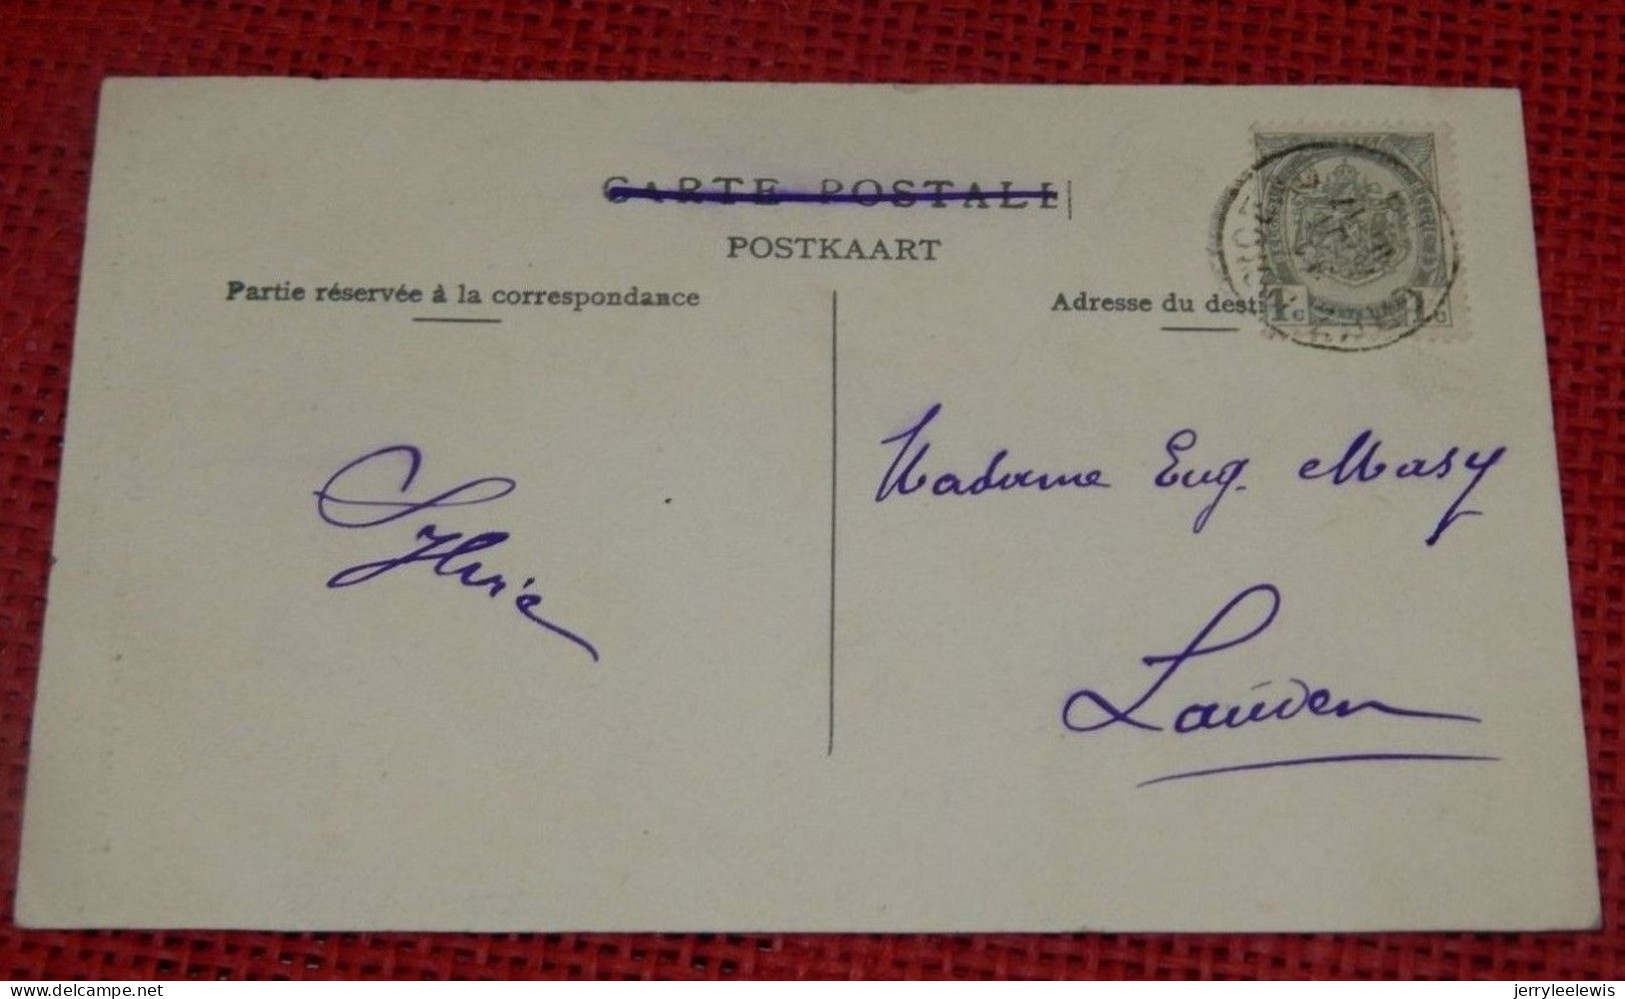 CARTE POSTALE
POSTKAART
Partie réservée à la correspondance
Adresse du desti
1 c 1 c
Sylvie
Madame Eug. Masy
Landen
delcampe.net
jerryleelewis